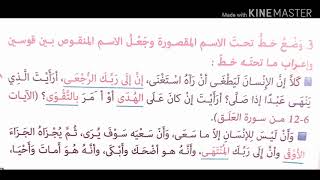 Made with KINEMASTER
3. وَضْعُ خطٍّ تحتَ الاسمِ المقصورةِ وجَعْلُ الاسمِ المنقوصِ بينَ قوسينِ
وإعرابِ ما تحتَه خطٌّ :
كَلَّا إنَّ الإنسَانَ لَيَطْغَى أَنْ رَآهُ اسْتَغْنَى، إنَّ إلَى رَبِّكَ الرُّجْعَى، أرَأَيْتَ الَّذِي
يَنْهَى عَبْدًا إذَا صَلَّى؟ أرَأَيْتَ إنْ كانَ عَلَى الهُدَى أوْ أمَرَ بالتَّقْوَى؟ (الآيات
6-12 من سورة العَلَق).
وَأنْ لَيْسَ للإنْسانِ إلاَّ ما سَعَى، وَأنَّ سَعْيَهُ سَوْفَ يُرَى، ثُمَّ يُجْزَاهُ الجَزَاءَ
الأوْفَى وأنَّ إلَى رَبِّكَ المُنْتَهَى. وأنَّه هو أضْحَكَ وأبْكَى، وأنَّه هُوَ أمَاتَ وَأحْيَا،